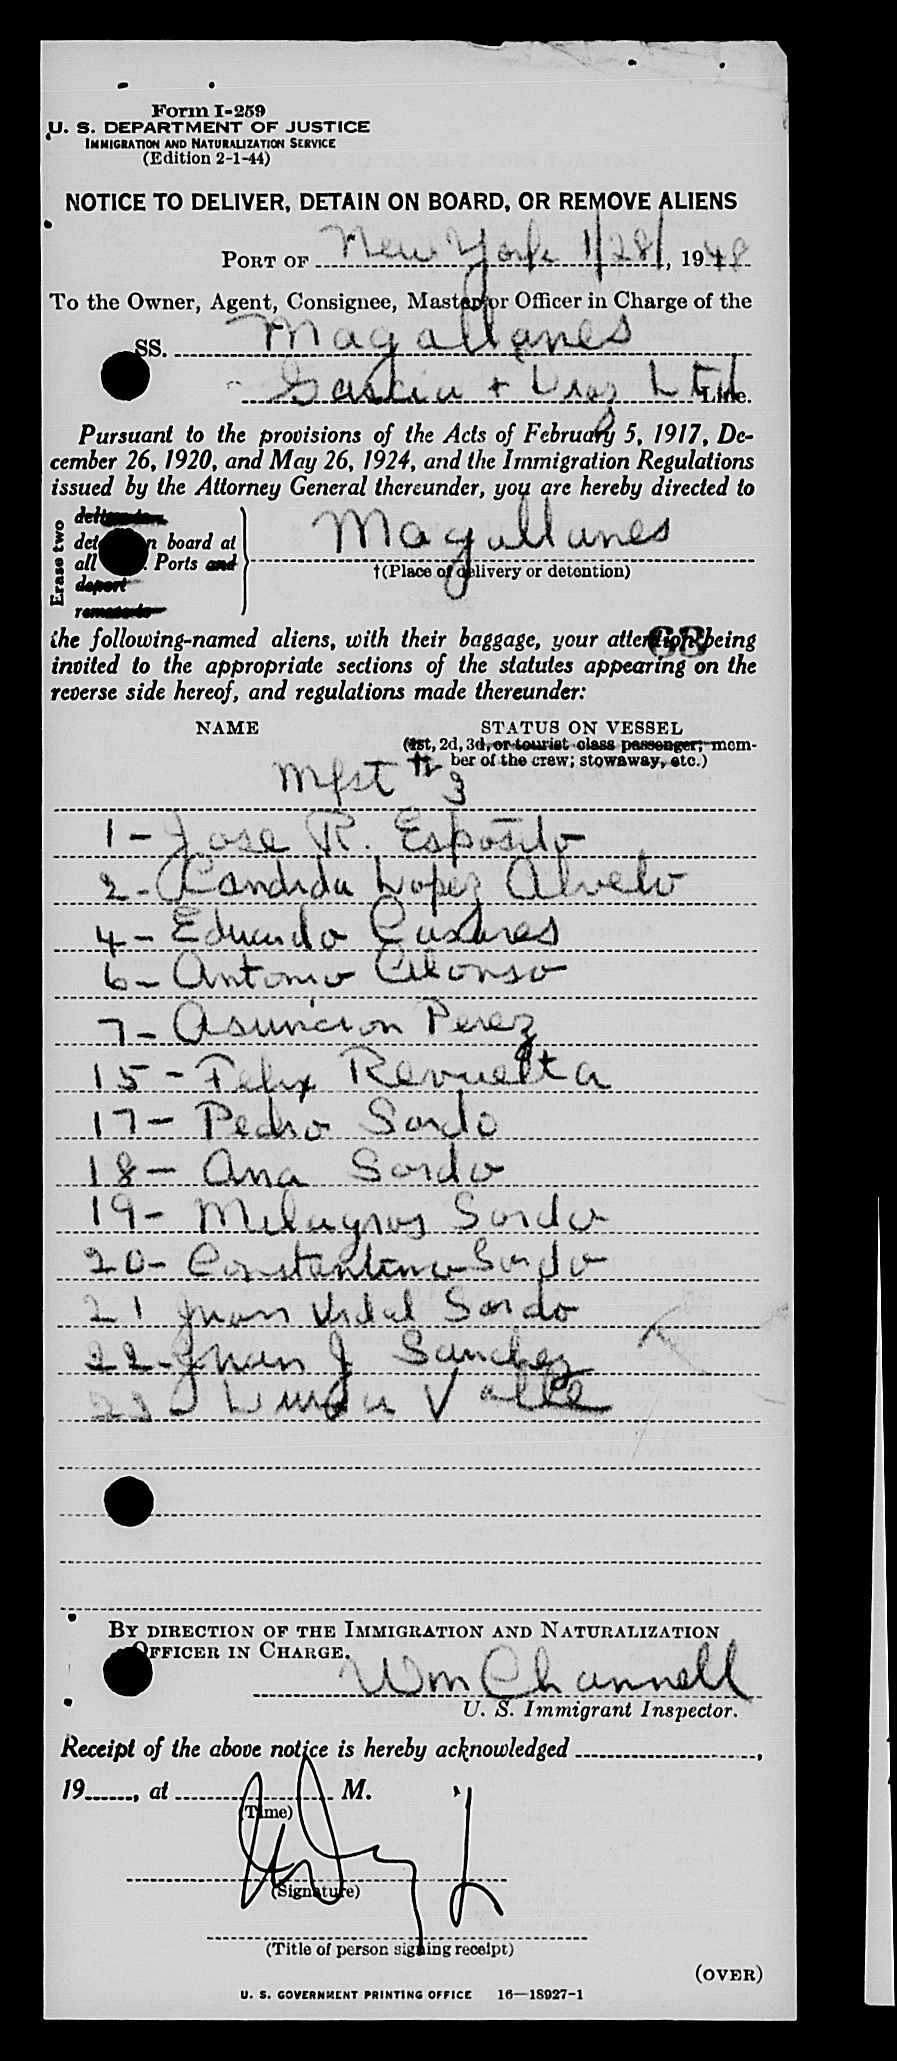 Form I-259
U. S. DEPARTMENT OF JUSTICE
IMMIGRATION AND NATURALIZATION SERVICE
(Edition 2-1-44)
NOTICE TO DELIVER, DETAIN ON BOARD, OR REMOVE ALIENS
PORT OF New York 1/28/, 1948
To the Owner, Agent, Consignee, Master or Officer in Charge of the
SS. Magallanes
Garcia + Diaz Ltd Line.
Pursuant to the provisions of the Acts of February 5, 1917, De-
cember 26, 1920, and May 26, 1924, and the Immigration Regulations
issued by the Attorney General thereunder, you are hereby directed to
Erase two
deliver to
det n board at
all Ports and
deport
remove to
Magallanes
†(Place of delivery or detention)
68
the following-named aliens, with their baggage, your attention being
invited to the appropriate sections of the statutes appearing on the
reverse side hereof, and regulations made thereunder:
NAME STATUS ON VESSEL
(1st, 2d, 3d, or tourist class passenger; mem-
ber of the crew; stowaway, etc.)
Mfst # 3
1 - Jose R. Esposito
2 - Candida Lopez Alvelo
4 - Eduardo Casares
6 - Antonio Alonso
7 - Asuncion Perez
15 - Felix Revuelta
17 - Pedro Sordo
18 - Ana Sordo
19 - Milagros Sordo
20 - Constantino Sordo
21 Juan Vidal Sordo
22 - Juan J Sanchez
23 - Valle
BY DIRECTION OF THE IMMIGRATION AND NATURALIZATION
OFFICER IN CHARGE.
Wm Channell
U. S. Immigrant Inspector.
Receipt of the above notice is hereby acknowledged ,
19 , at M.
(Time)
(Signature)
(Title of person signing receipt)
(OVER)
U. S. GOVERNMENT PRINTING OFFICE 16—18927-1